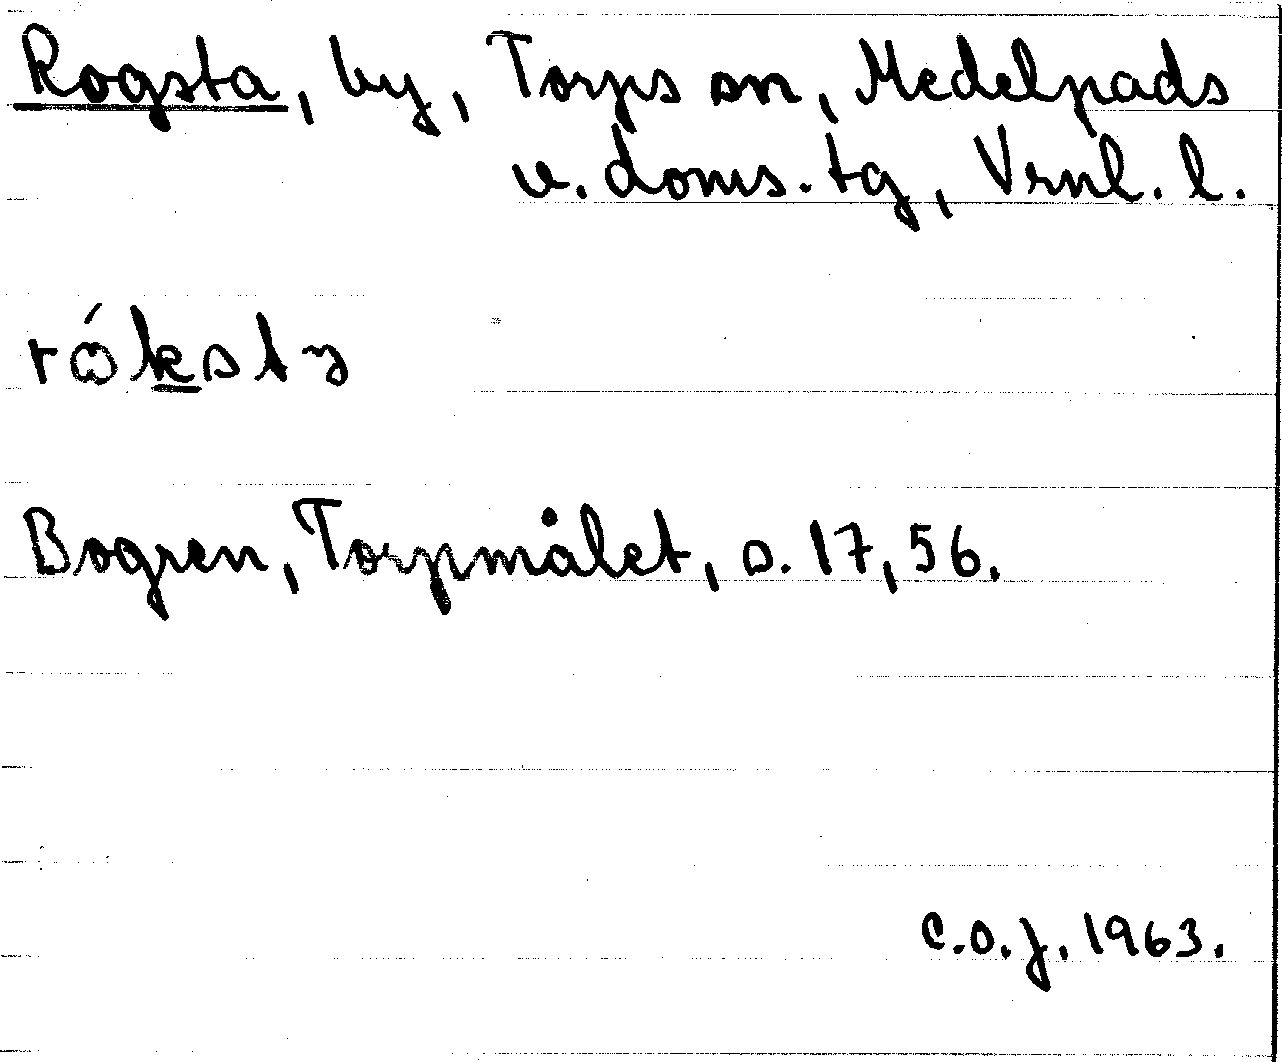 Rogsta, by, Torps sn, Medelpads
v. doms. tg, Vrnl. l.
Bogren, Torpmålet, s. 17, 56.
C.O.J. 1963.